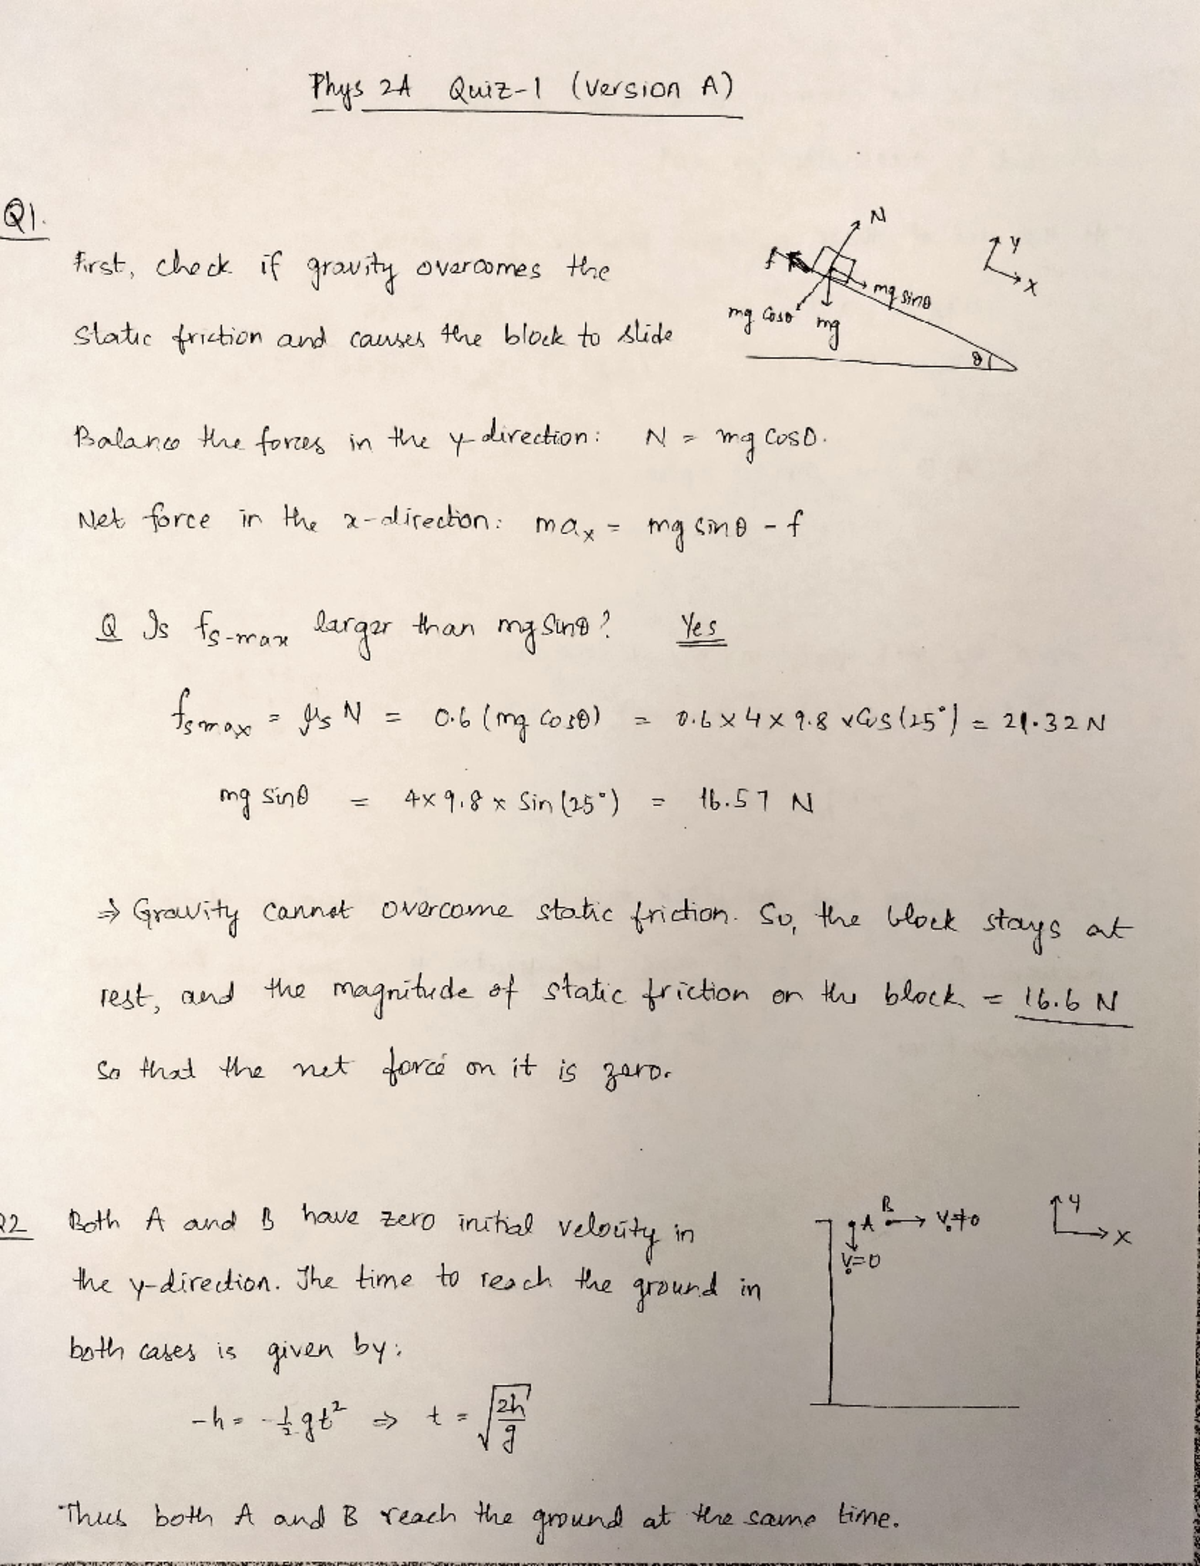 Phys 2A Quiz-1 (Version A)
Q1.
First, check if gravity overcomes the
static friction and causes the block to slide
N
f
mg sinθ
mg cosθ
mg
θ
y
x
Balance the forces in the y-direction: N = mg cosθ.
Net force in the x-direction: maₓ = mg sinθ - f
Q Is fs-max larger than mg sinθ? Yes
fsmax = μs N = 0.6 (mg cosθ) = 0.6 × 4 × 9.8 × cos(25°) = 21.32 N
mg sinθ = 4 × 9.8 × sin(25°) = 16.57 N
⇒ Gravity cannot overcome static friction. So, the block stays at
rest, and the magnitude of static friction on the block = 16.6 N
so that the net force on it is zero.
Q2 Both A and B have zero initial velocity in
the y-direction. The time to reach the ground in
both cases is given by:
A
B
v₀≠0
v₀=0
y
x
-h = -½gt² ⇒ t = √(2h/g)
Thus both A and B reach the ground at the same time.